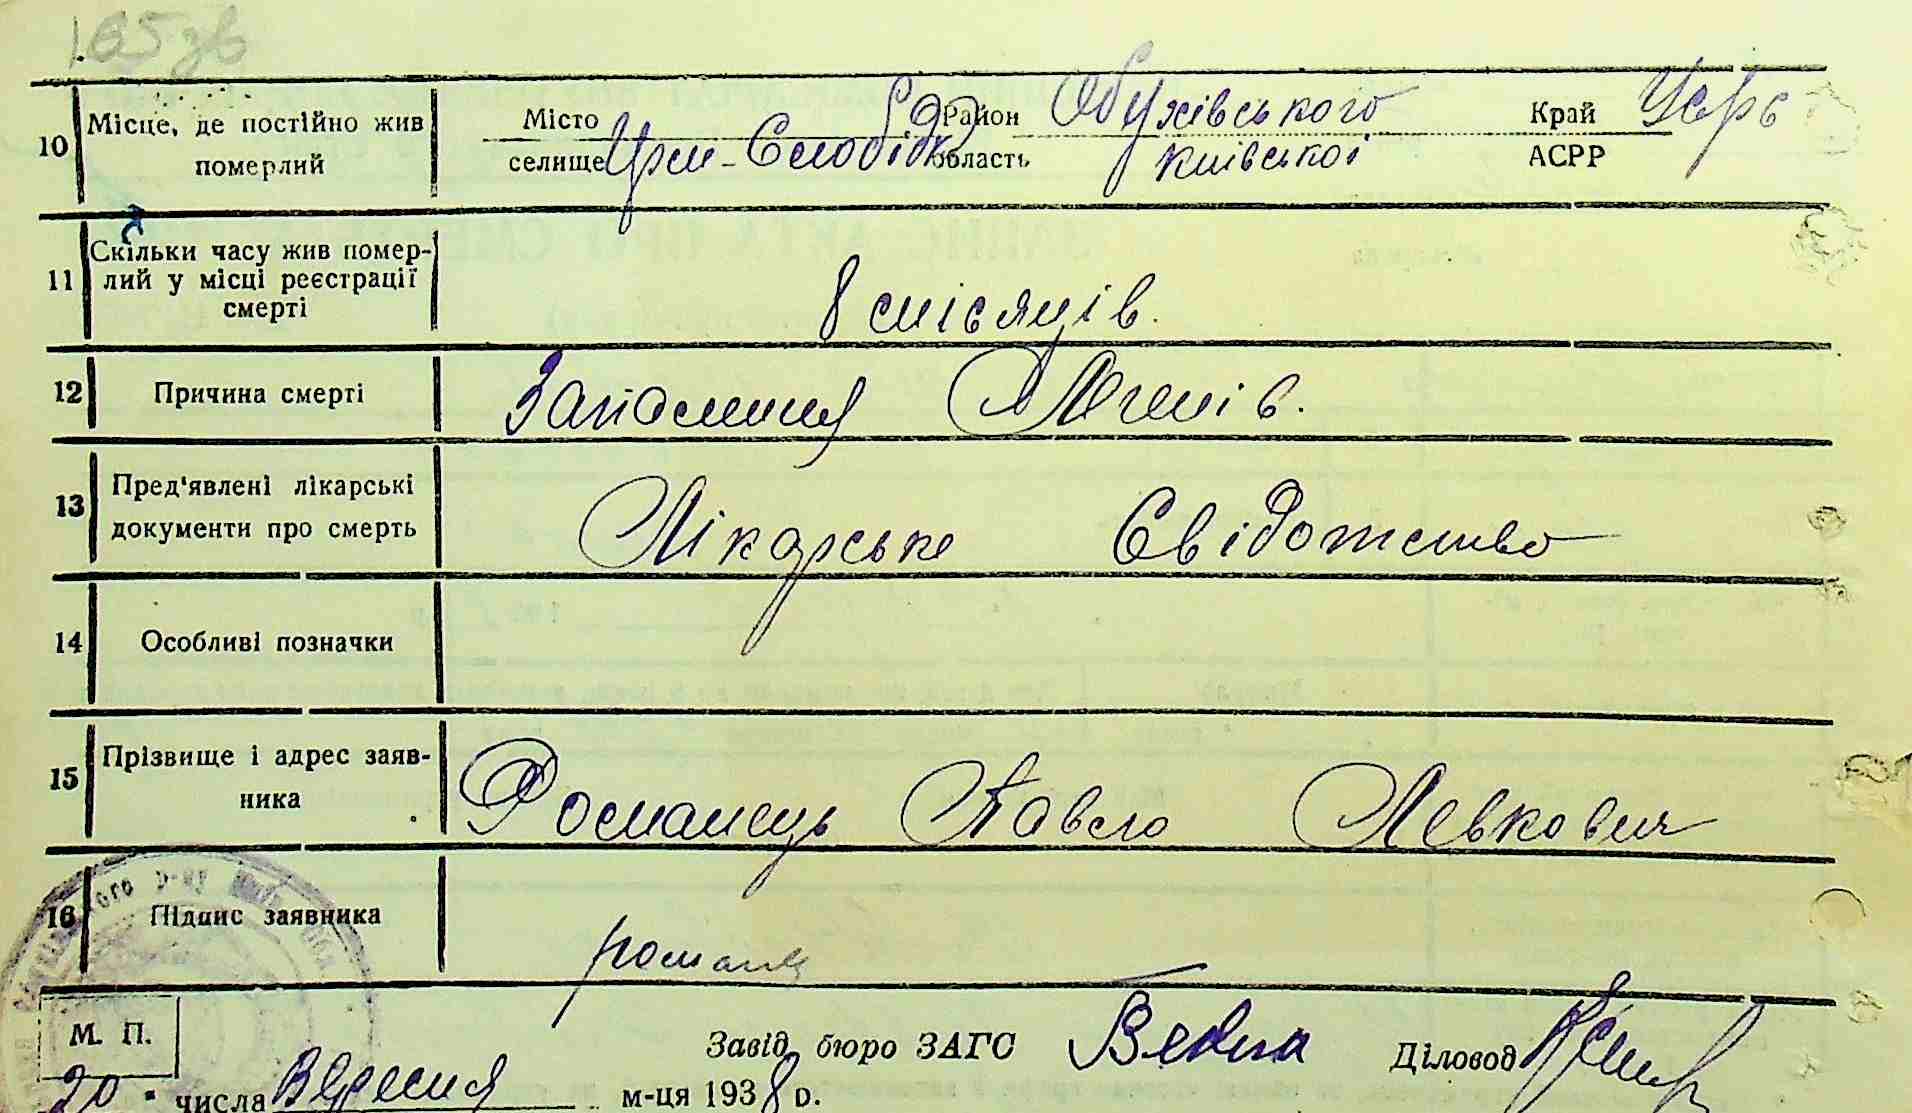 165 зв
10 Місце, де постійно жив померлий
Місто Район Обухівського Край Усрс
селище Црм-Слобідка область київської АСРР
11 Скільки часу жив помер-
лий у місці реєстрації
смерті
8 місяців.
12 Причина смерті Запалення Легенів.
13 Пред'явлені лікарські
документи про смерть
Лікарське Свідотство
14 Особливі позначки
15 Прізвище і адрес заяв-
ника
Романець Павло Левкович
16 Підпис заявника
М. П.
Завід. бюро ЗАГС Діловод
20 числа Вересня м-ця 1938 р.